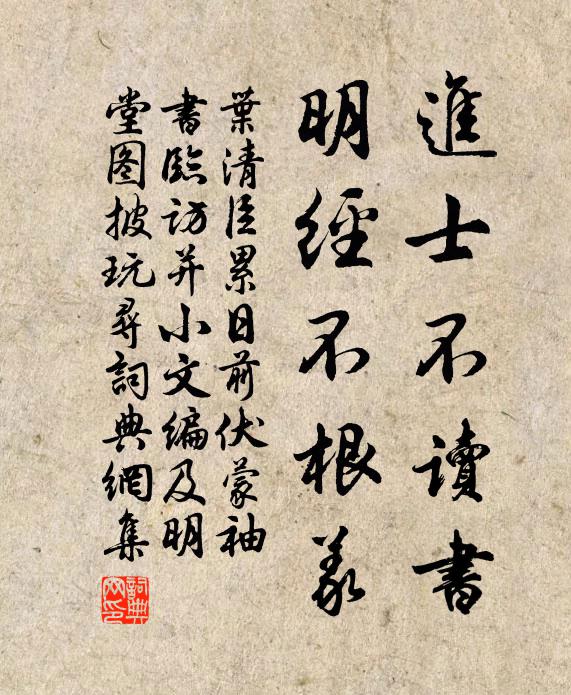 進士不讀書
明經不根義
葉清臣累日前伏蒙袖
書臨訪并小文編及明
堂图披玩尋詞典網集
詞典